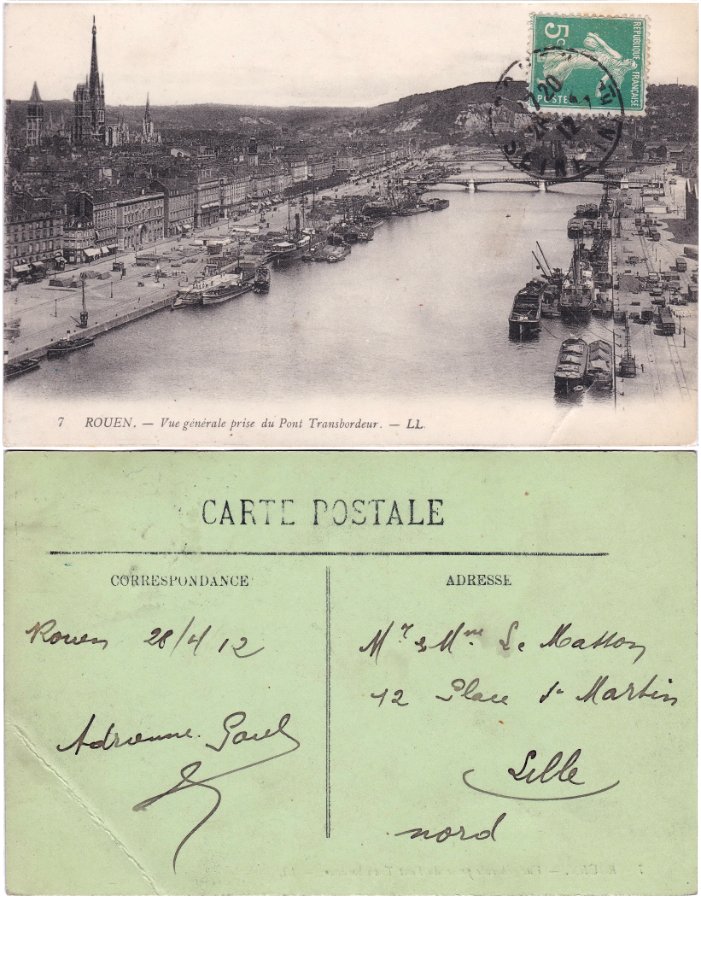 RÉPUBLIQUE FRANÇAISE
5c
POSTES
20
12
7 ROUEN. — Vue générale prise du Pont Transbordeur. — LL
CARTE POSTALE
CORRESPONDANCE
ADRESSE
Rouen 28/4/12
Adrienne. Paul
Mr & Mme Le Masson
12 Place St Martin
Lille
nord